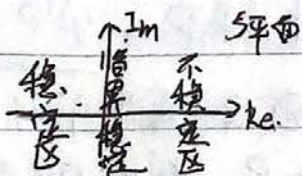 Im
S平面
稳定区
临界稳定
不稳定区
Re.